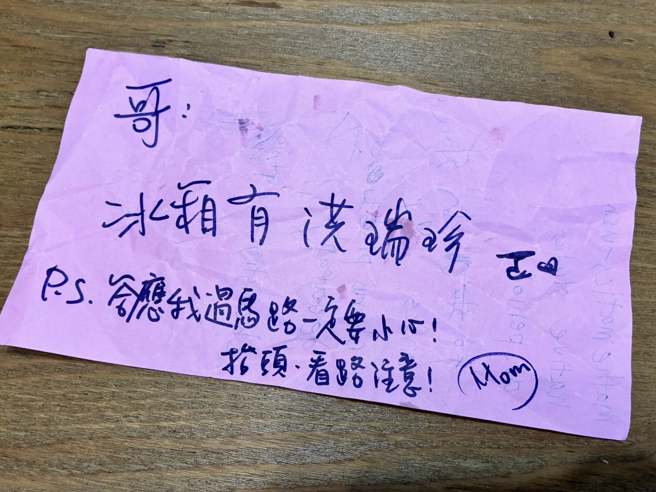 哥：
冰箱有洪瑞珍
P.S. 答應我過馬路一定要小心！
抬頭．看路注意！ Mom